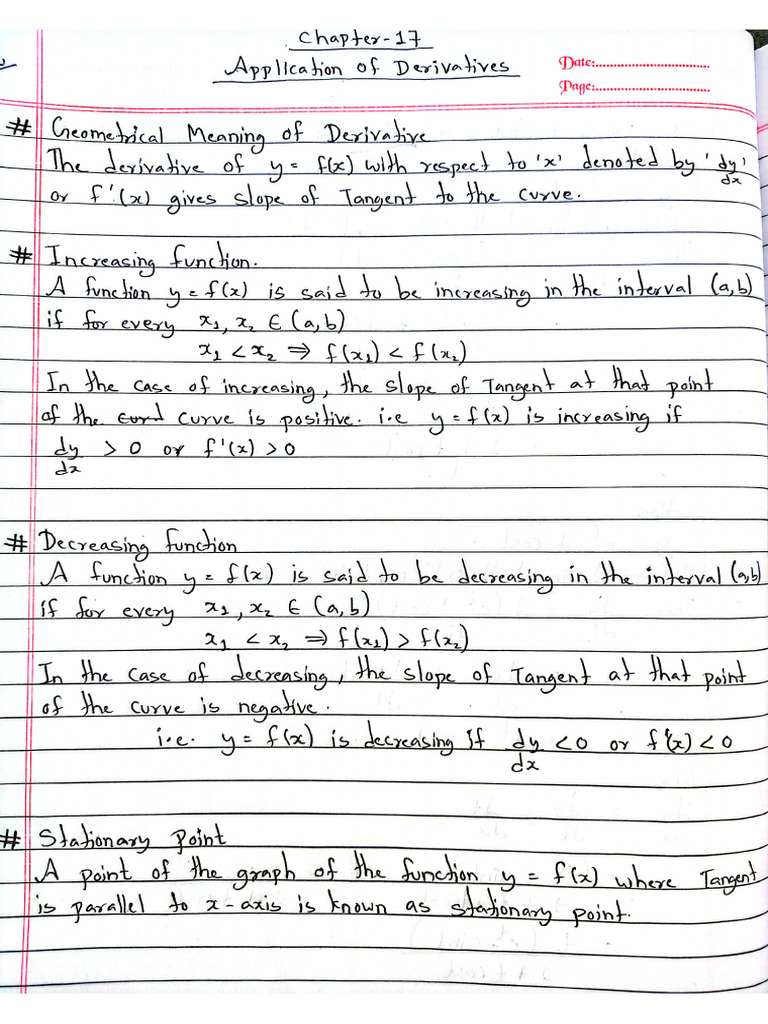 Chapter-17
Application of Derivatives
Date:
Page:
# Geometrical Meaning of Derivative
The derivative of y = f(x) with respect to 'x' denoted by 'dy/dx'
or f'(x) gives slope of Tangent to the curve.
# Increasing function.
A function y = f(x) is said to be increasing in the interval (a,b)
if for every x₁, x₂ ∈ (a,b)
x₁ < x₂ ⇒ f(x₁) < f(x₂)
In the case of increasing, the slope of Tangent at that point
of the curve is positive. i.e y = f(x) is increasing if
dy/dx > 0 or f'(x) > 0
# Decreasing function
A function y = f(x) is said to be decreasing in the interval (a,b)
if for every x₁, x₂ ∈ (a,b)
x₁ < x₂ ⇒ f(x₁) > f(x₂)
In the case of decreasing, the slope of Tangent at that point
of the curve is negative.
i.e. y = f(x) is decreasing if dy/dx < 0 or f'(x) < 0
# Stationary Point
A point of the graph of the function y = f(x) where Tangent
is parallel to x-axis is known as stationary point.